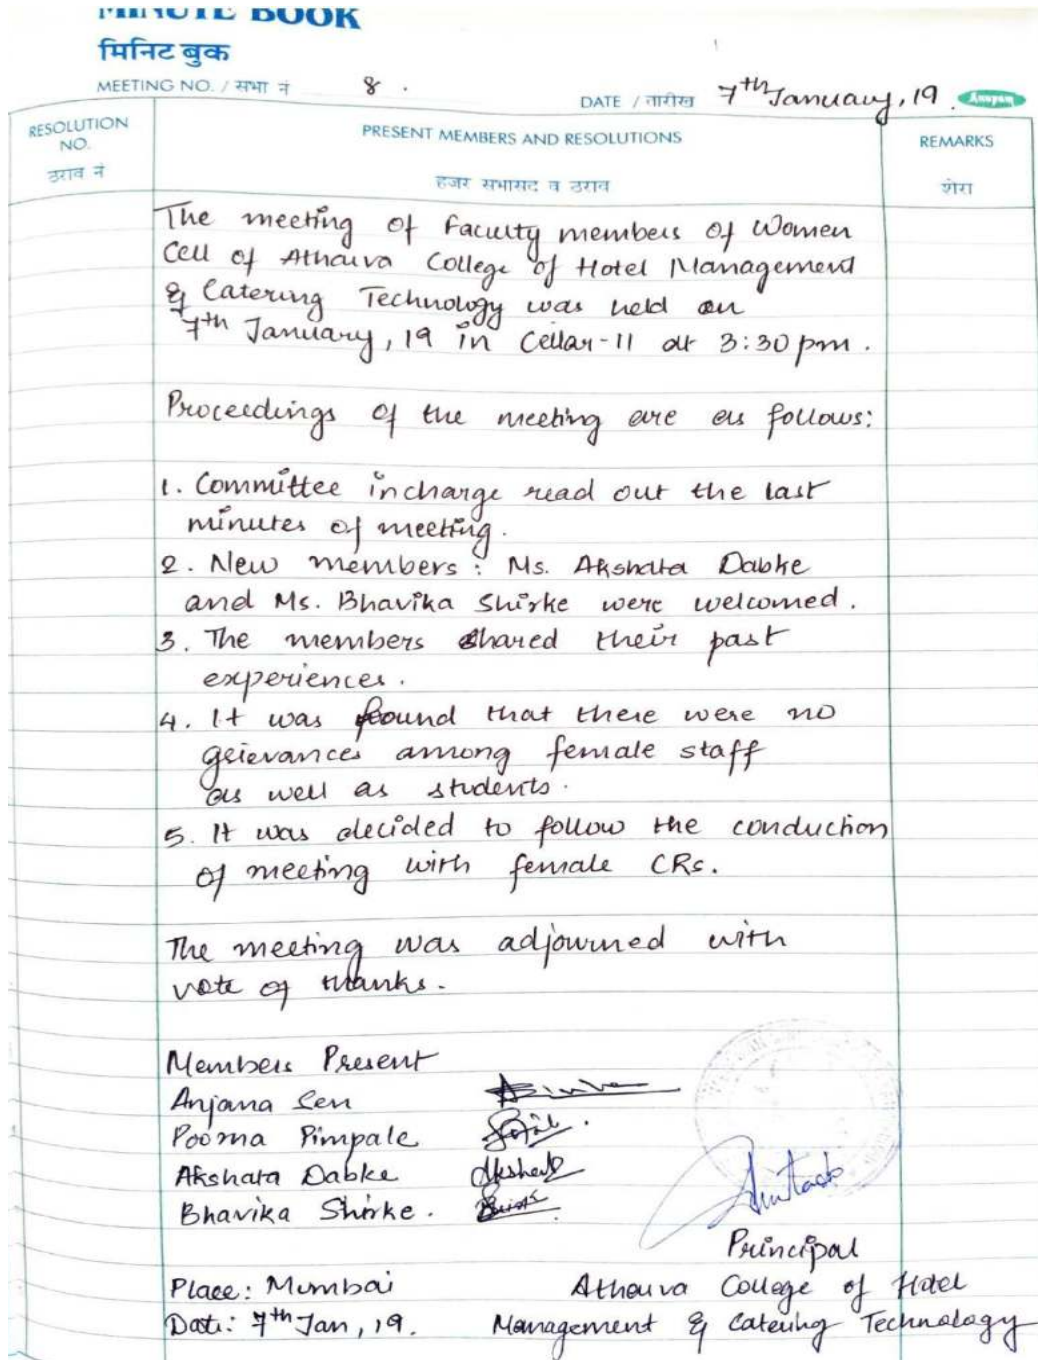 MINUTE BOOK
मिनिट बुक
MEETING NO. / सभा नं 8.
DATE / तारीख 7th January, 19. Anupam
RESOLUTION NO. ठराव नं
PRESENT MEMBERS AND RESOLUTIONS
हजर सभासद व ठराव
REMARKS
शेरा
The meeting of Faculty members of Women
Cell of Atharva College of Hotel Management
& Catering Technology was held on
7th January, 19 in Cellar-11 at 3:30 pm.
Proceedings of the meeting are as follows:
1. Committee incharge read out the last
minutes of meeting.
2. New members: Ms. Akshata Dabke
and Ms. Bhavika Shirke were welcomed.
3. The members shared their past
experiences.
4. It was found that there were no
grievances among female staff
as well as students.
5. It was decided to follow the conduction
of meeting with female CRs.
The meeting was adjourned with
vote of thanks.
Members Present
Anjana Sen
Poorna Pimpale
Akshata Dabke
Bhavika Shirke.
Principal
Place: Mumbai Atharva College of Hotel
Date: 7th Jan, 19. Management & Catering Technology